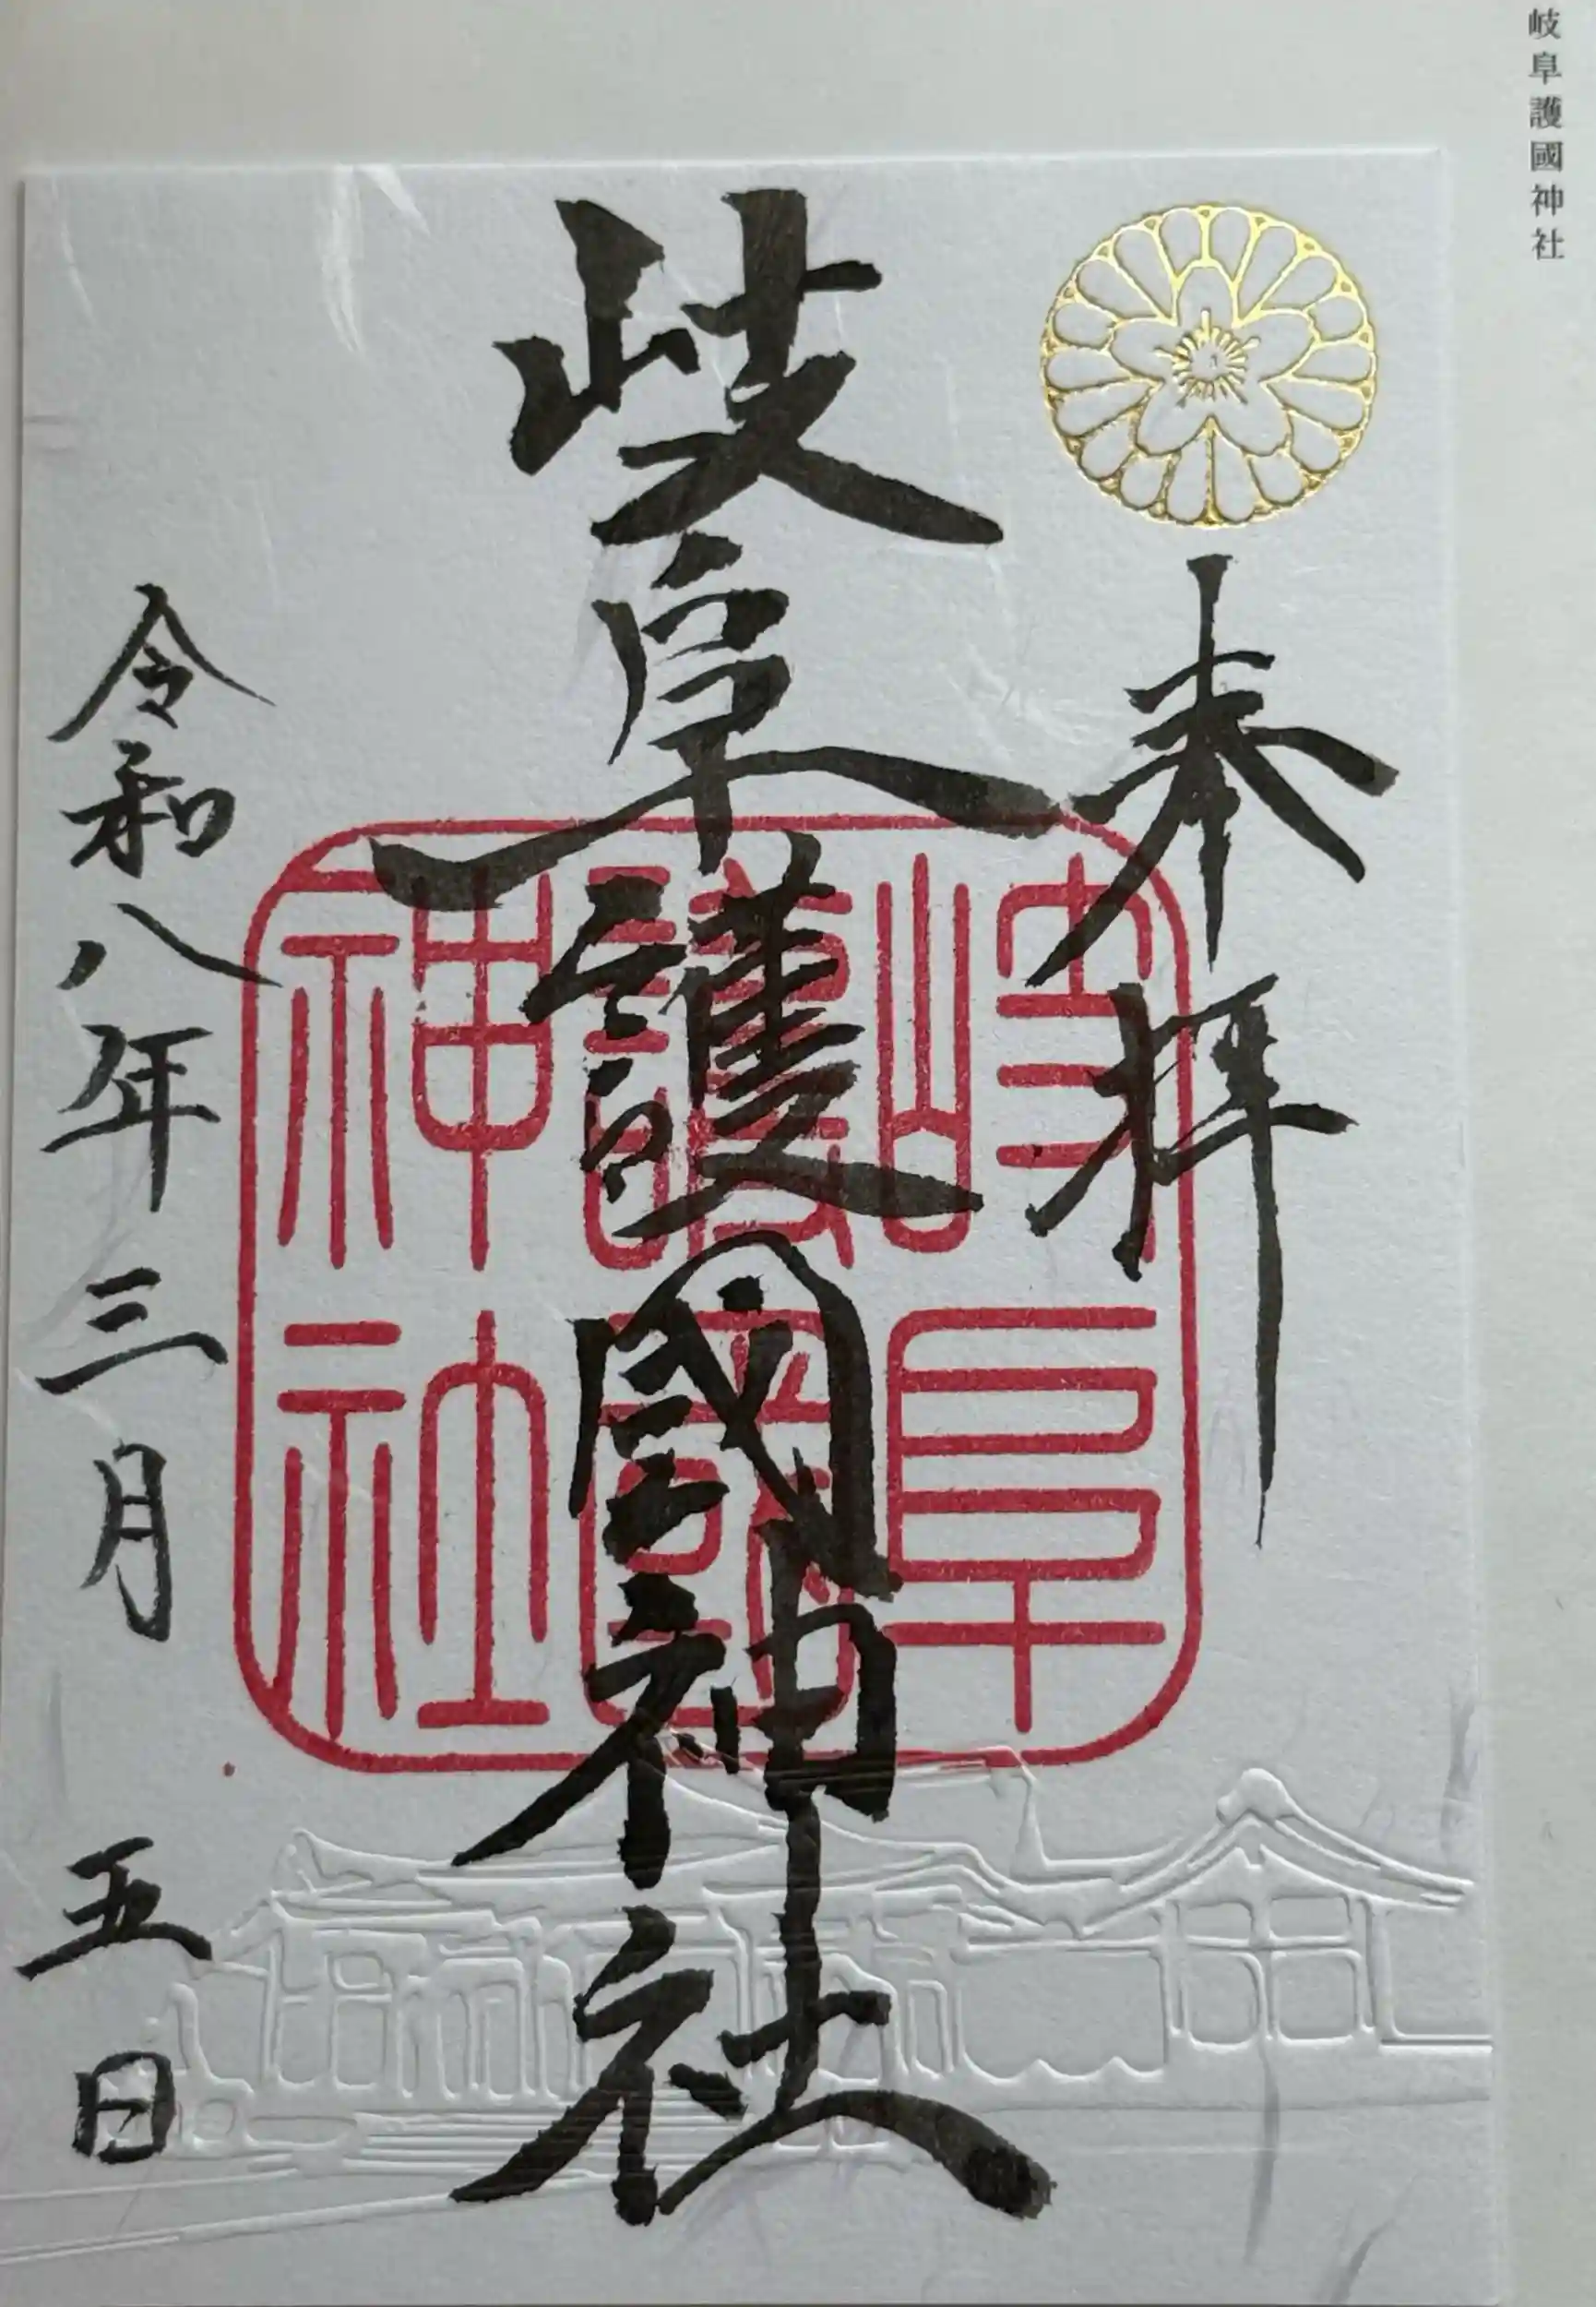 岐阜護國神社
奉拝
岐阜護國神社
岐阜護國神社
令和八年三月五日